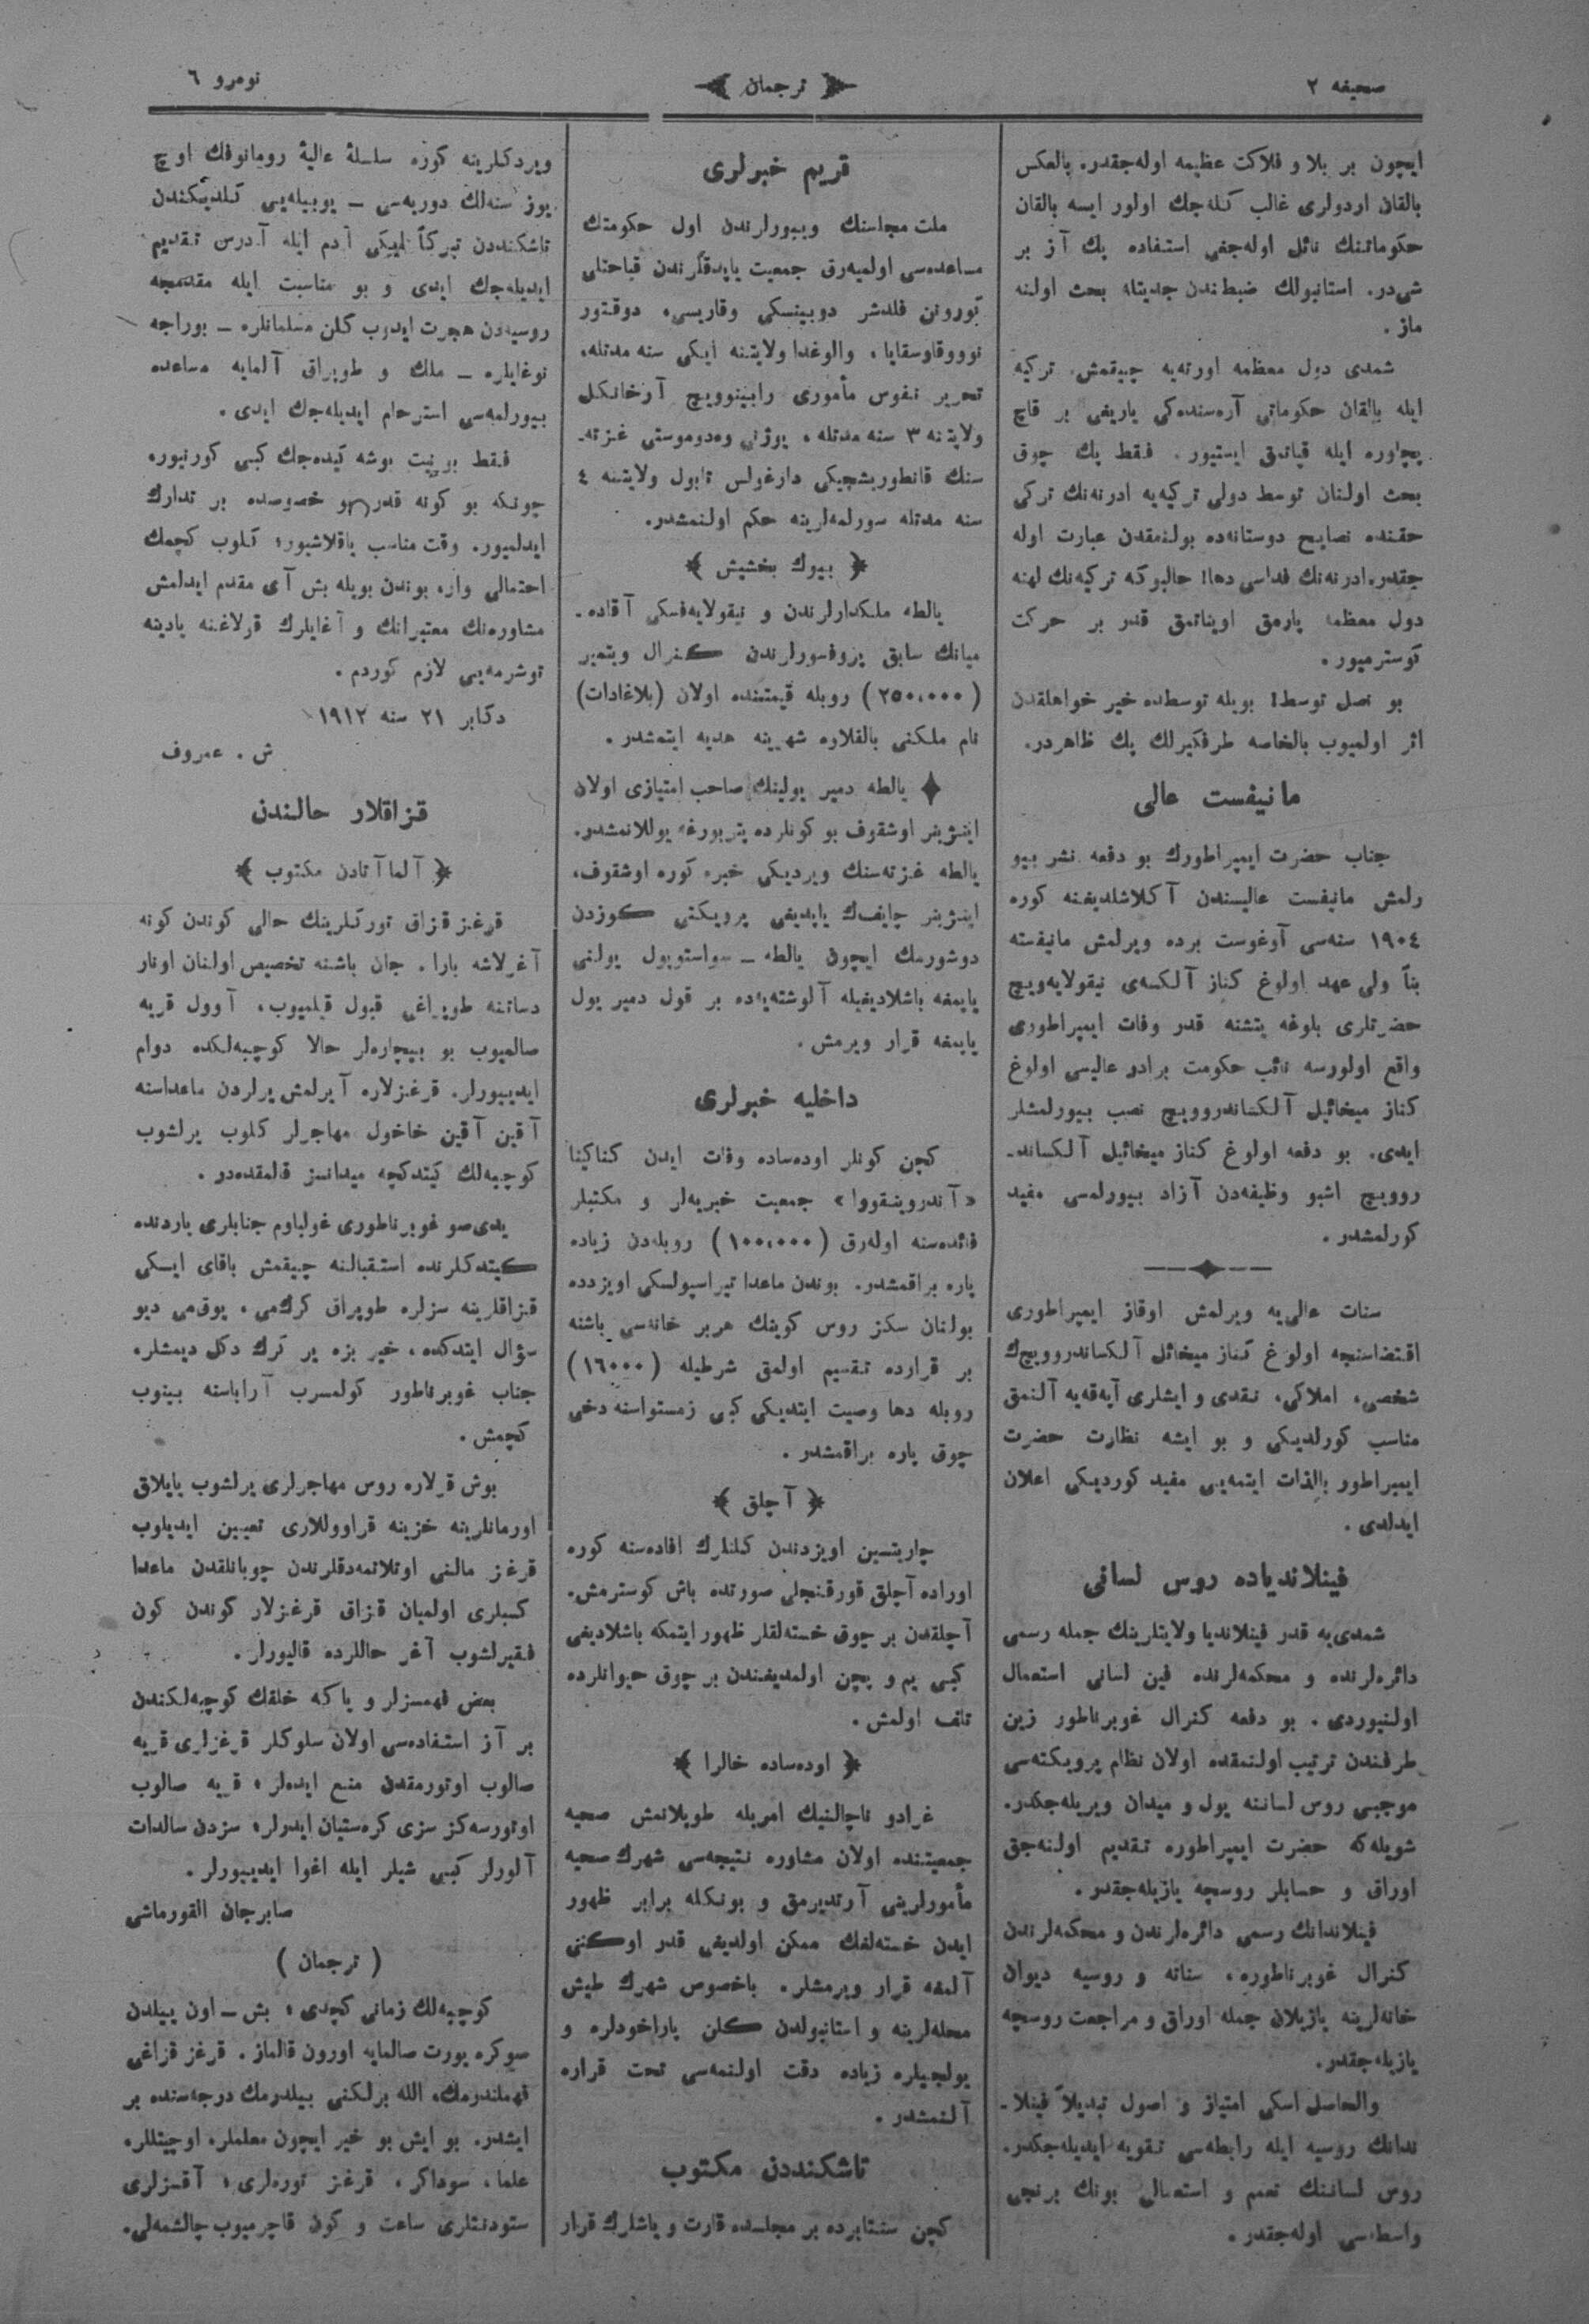 صحیفه ٢
ترجمان
نومرو ٦
ایچون بر بلا و فلاکت عظیمه اوله‌جقدر. بالعکس
بالقان اردولری غالب کله‌جك اولور ایسه بالقان
حکوماتنك نائل اوله‌جغی استفاده پك آز بر
شی‌در. استانبولك ضبطندن جدیتله بحث اولنه
ماز .
شمدی دول معظمه اورته‌یه چیقمش، ترکیه
ایله بالقان حکوماتی آره‌سنده‌کی یاریغی بر قاچ
پچاوره ایله قپاتمق ایستیور. فقط پك چوق
بحث اولنان توسط دولی ترکیه‌یه ادرنه‌نك ترکی
حقنده نصایح دوستانه‌ده بولنمقدن عبارت اوله
جقدر. ادرنه‌نك فداسی دها! حالبوکه ترکیه‌نك لهنه
دول معظمه پارمق اویناتمق قدر بر حرکت
کوسترمیور.
بو نصل توسط! بویله توسطده خیر خواهلقدن
اثر اولمیوب بالخاصه طرفکیرلك پك ظاهردر.
مانیفست عالی
جناب حضرت ایمپراطورك بو دفعه نشر بیو
رلمش مانیفست عالیسندن آکلاشلدیغنه کوره
١٩٠٤ سنه‌سی آوغوست برده ویرلمش مانیفسته
بناً ولی عهد اولوغ کناز آلکسه‌ی نیقولایه‌ویچ
حضرتلری بلوغه یتشنه قدر وفات ایمپراطوری
واقع اولورسه نائب حکومت برادر عالیسی اولوغ
کناز میخائیل آلکساندروویچ نصب بیورلمشلر
ایدی. بو دفعه اولوغ کناز میخائیل آلکساند-
روویچ اشبو وظیفه‌دن آزاد بیورلمسی مفید
کورلمشدر.
سنات عالی‌یه ویرلمش اوقاز ایمپراطوری
اقتضاسنجه اولوغ کناز میخائل آلکساندروویچ‌ك
شخصی، املاکی، نقدی و ایشلری آپه‌قه‌یه آلنمق
مناسب کورلدیکی و بو ایشه نظارت حضرت
ایمپراطور بالذات ایتمه‌یی مفید کوردیکی اعلان
ایدلدی.
فینلاندیاده روس لسانی
شمدی‌یه قدر فینلاندیا ولایتلرینك جمله رسمی
دائره‌لرنده و محکمه‌لرنده فین لسانی استعمال
اولنیوردی. بو دفعه کنرال غوبرناطور زین
طرفندن ترتیب اولنمقده اولان نظام پرویکته‌سی
موجبی روس لساننه یول و میدان ویریله‌جکدر.
شویله‌که حضرت ایمپراطوره تقدیم اولنه‌جق
اوراق و حسابلر روسچه یازیله‌جقدر.
فینلاندانك رسمی دائره‌لرندن و محکمه‌لرندن
کنرال غوبرناطوره، سناته و روسیه دیوان
خانه‌لرینه یازیلان جمله اوراق و مراجعت روسچه
یازیله‌جقدر.
والحاصل اسکی امتیاز و اصول تبدیلاً فینلا-
ندانك روسیه ایله رابطه‌سی تقویه ایدیله‌جکدر.
روس لساننك تعمم و استعمالی بونك برنجی
واسطه‌سی اوله‌جقدر.
قریم خبرلری
ملت مجلسنك وییورلرندن اول حکومتك
مساعده‌سی اولمیه‌رق جمعیت یاپدقلرندن قباحتلی
کورونن فلدشر دوبینسکی وقاریسی، دوقتور
نوووقاوسقایا، والوغدا ولایتنه ایکی سنه مدتله،
تحریر نفوس مأموری رابینوویچ آرخانکل
ولایتنه ٣ سنه مدتله، یوژنی وه‌دوموستی غزته-
سنك قانطوریشچیکی دارغولس تابول ولایتنه ٤
سنه مدتله سورلمه‌لرینه حکم اولنمشدر.
﴿ بیوك بخشیش ﴾
یالطه ملکدارلرندن و نیقولایه‌فسکی آقاده-
میانك سابق پروفسورلرندن کنرال ویتمیر
(٢٥٠،٠٠٠) روبله قیمتنده اولان (بلاغادات)
نام ملکنی بالقلاره شهرینه هدیه ایتمشدر.
یالطه دمیر یولینك صاحب امتیازی اولان
اینژینر اوشقوف بو کونلرده پتربورغه یوللانمشدر.
یالطه غزته‌سنك ویردیکی خبره کوره اوشقوف،
اینژینر چایف‌ك یاپدیغی پرویکتی کوزدن
دوشورمك ایچون یالطه – سواستوپول یولنی
یاپمغه باشلادیغیله آلوشته‌یه‌ده بر قول دمیر یول
یاپمغه قرار ویرمش.
داخلیه خبرلری
کچن کونلر اوده‌ساده وفات ایدن کناکینا
«آندرونیقووا» جمعیت خیریه‌لر و مکتبلر
فائده‌سنه اوله‌رق (١٠٠،٠٠٠) روبله‌دن زیاده
پاره براقمشدر. بوندن ماعدا تیراسپولسکی اویزدده
بولنان سکز روس کوینك هربر خانه‌سی باشنه
بر قرارده تقسیم اولمق شرطیله (١٦٠٠٠)
روبله دها وصیت ایتدیکی کبی زمستواسنه دخی
چوق پاره براقمشدر.
﴿ آچلق ﴾
چاریتسین اویزدندن کلنلرك افاده‌سنه کوره
اوراده آچلق قورقنجلی صورتده باش کوسترمش.
آچلقدن بر چوق خسته‌لقلر ظهور ایتمکه باشلادیغی
کبی یم و پچن اولمدیغندن بر چوق حیوانلرده
تلف اولمش.
﴿ اوده‌ساده خالرا ﴾
غرادو ناچالنیك امریله طوپلانمش صحیه
جمعیتنده اولان مشاوره نتیجه‌سی شهرك صحیه
مأمورلرینی آرتدیرمق و بونکله برابر ظهور
ایدن خسته‌لغك ممکن اولدیغی قدر اوکنی
آلمغه قرار ویرمشلر. باخصوص شهرك طیش
محله‌لرینه و استانبولدن کلن پاراخودلره و
یولجیلره زیاده دقت اولنمه‌سی تحت قراره
آلنمشدر.
تاشکنددن مکتوب
کچن سنتابرده بر مجلسده قارت و یاشلرك قرار
ویردکلرینه کوره سلسلهٔ عالیهٔ رومانوفك اوچ
یوز سنه‌لك دوریه‌سی – یوبیله‌یی کلدیکندن
تاشکنددن تبرکاً ایکی آدم ایله آدرس تقدیم
ایدیله‌جك ایدی و بو مناسبت ایله مقدمجه
روسیه‌دن هجرت ایدوب کلن مسلمانلره – بوراجه
نوغایلره – ملك و طوپراق آلمایه مساعده
بیورلمه‌سی استرحام ایدیله‌جك ایدی.
فقط بو نیت بوشه کیده‌جك کبی کورنیور.
چونکه بو کونه قدر بو خصوصده بر تدارك
ایدلمیور. وقت مناسب یاقلاشیور؛ کلوب کچمك
احتمالی وار. بوندن بویله بش آی مقدم ایدلمش
مشاوره‌نك معتبرانك و آغایلرك قولاغنه یادینه
توشرمه‌یی لازم کوردم.
دکابر ٢١ سنه ١٩١٢
ش. عمروف
قزاقلار حالندن
﴿ آلما آتادن مکتوب ﴾
قرغز قزاق تورکلرینك حالی کوندن کونه
آغرلاشه بارا. جان باشنه تخصیص اولنان اونار
دساتنه طوپراغی قبول قیلمیوب، آوول قریه
صالمیوب بو بیچاره‌لر حالا کوچبه‌لکده دوام
ایدییورلر. قرغزلاره آیرلمش یرلردن ماعداسنه
آقین آقین خاخول مهاجرلر کلوب یرلشوب
کوچبه‌لك کیتدکچه میدانسز قالمقده‌در.
یدی‌صو غوبرناطوری غولباوم جنابلری یاردنده
کیتدکلرنده استقبالنه چیقمش باقای ایسکی
قزاقلرینه سزلره طوپراق کرك‌می، یوق‌می دیو
سؤال ایتدکده، خیر بزه یر کرك دکل دیمشلر.
جناب غوبرناطور کولمسرب آراباسنه بینوب
کچمش.
بوش قرلاره روس مهاجرلری یرلشوب یایلاق
اورمانلرینه خزینه قراووللاری تعیین ایدیلوب
قرغز مالنی اوتلاتمه‌دقلرندن چوبانلقدن ماعدا
کسبلری اولمیان قزاق قرغزلار کوندن کون
فقیرلشوب آغر حاللرده قالیورلر.
بعض فهمسزلر و یاکه خلقك کوچبه‌لکندن
بر آز استفاده‌سی اولان سلوکلر قرغزلری قریه
صالوب اوتورمقدن منع ایده‌لر؛ قریه صالوب
اوتورسه‌کز سزی کره‌ستیان ایدرلر، سزدن سالدات
آلورلر کبی شیلر ایله اغوا ایدییورلر.
صابرجان القورماشی
(ترجمان)
کوچبه‌لك زمانی کچدی؛ بش – اون ییلدن
صوکره یورت صالمایه اورون قالماز. قرغز قزاغی
فهملندرمك، الله برلکنی بیلدرمك درجه‌سنده بر
ایشدر. بو ایش بو خیر ایچون معلملر، اوچیتللر،
علما، سوداکر، قرغز توره‌لری، آقسزلری
ستودنتلری ساعت و کون قاچرمیوب چالشمه‌لی.